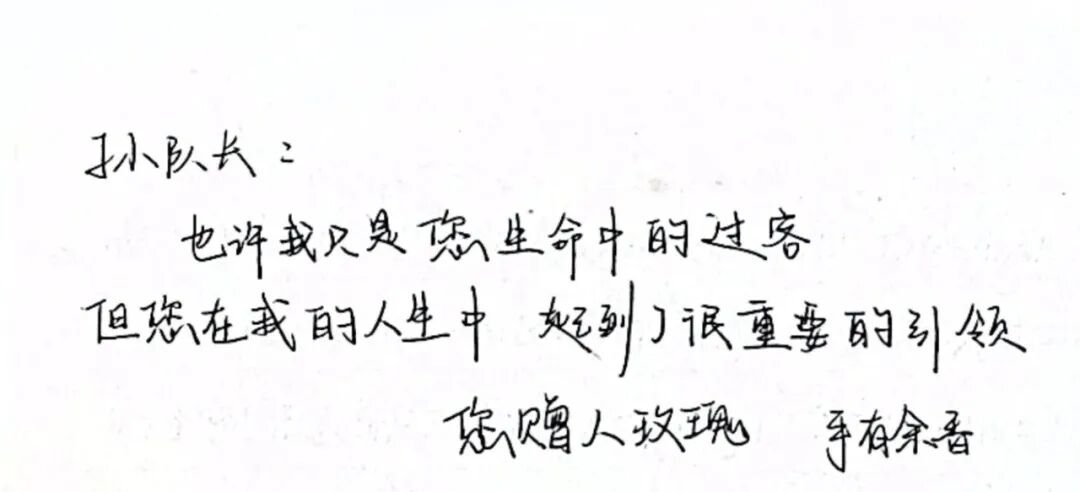 孙队长：
也许我只是您生命中的过客
但您在我的人生中 起到了很重要的引领
您赠人玫瑰 手有余香